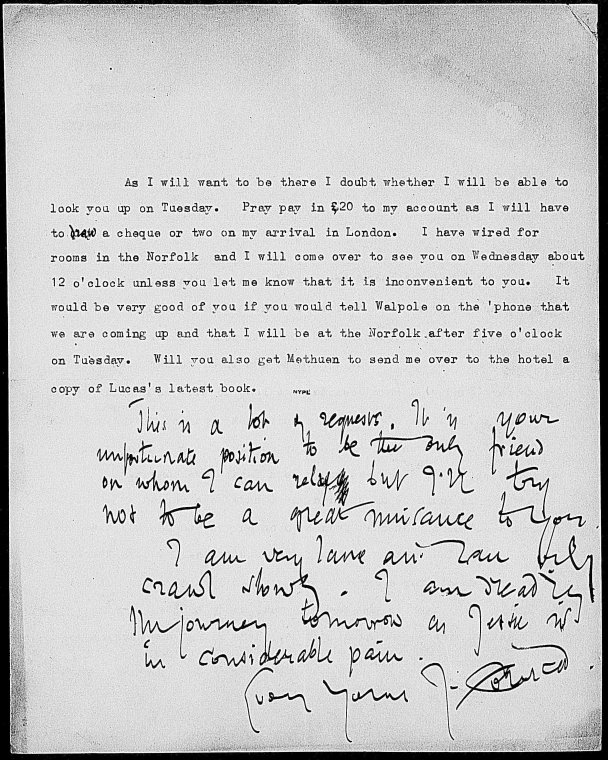 As I will want to be there I doubt whether I will be able to
look you up on Tuesday. Pray pay in £20 to my account as I will have
to draw a cheque or two on my arrival in London. I have wired for
rooms in the Norfolk and I will come over to see you on Wednesday about
12 o'clock unless you let me know that it is inconvenient to you. It
would be very good of you if you would tell Walpole on the 'phone that
we are coming up and that I will be at the Norfolk after five o'clock
on Tuesday. Will you also get Methuen to send me over to the hotel a
copy of Lucas's latest book.
NYPL
This is a lot of requests. It is your
unfortunate position to be the only friend
on whom I can rely but I'll try
not to be a great nuisance to you.
I am very lame and can only
crawl slowly. I am dreading
the journey tomorrow as Jessie is
in considerable pain.
Ever Yours J. Conrad.